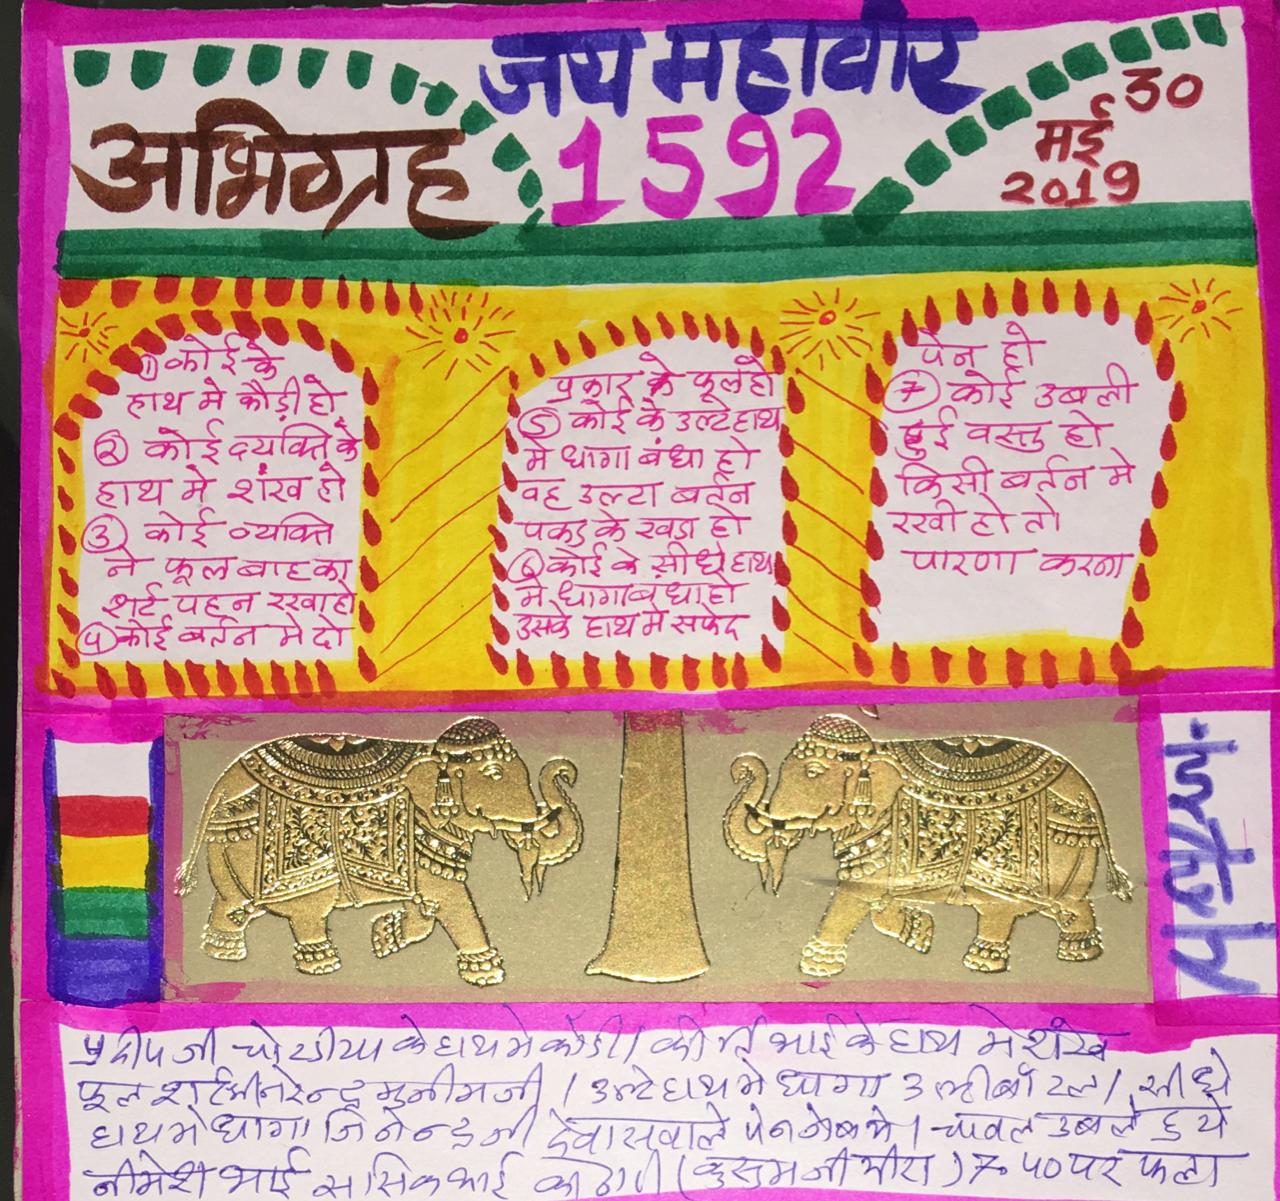 जय महावीर
अभिग्रह 1592
30
मई
2019
① कोई के
हाथ मे कौड़ी हो
② कोई व्यक्ति के
हाथ मे शंख हो
③ कोई व्यक्ति
ने फूल बाह का
शर्ट पहन रखा हो
④ कोई बर्तन मे दो
प्रकार के फूल हो
⑤ कोई के उल्टे हाथ
मे धागा बंधा हो
वह उल्टा बर्तन
पकड के खडा हो
⑥ कोई के सीधे हाथ
मे धागा बंधा हो
उसके हाथ मे सफेद
पेन हो
⑦ कोई उबली
हुई वस्तु हो
किसी बर्तन मे
रखी हो तो
पारणा करना
प्रदीप जी चोरडीया के हाथ मे कौडी / कीर्ति भाई के हाथ मे शंख
फूल शर्ट नरेन्द्र मुनीमजी / उल्टे हाथ मे धागा उल्टी बॉटल / सीधे
हाथ मे धागा जिनेन्द्र जी देवास वाले पेन / चावल उबले हुये
नीमेश भाई रसिक भाई (कुसुम जी) 7-40 पर फला